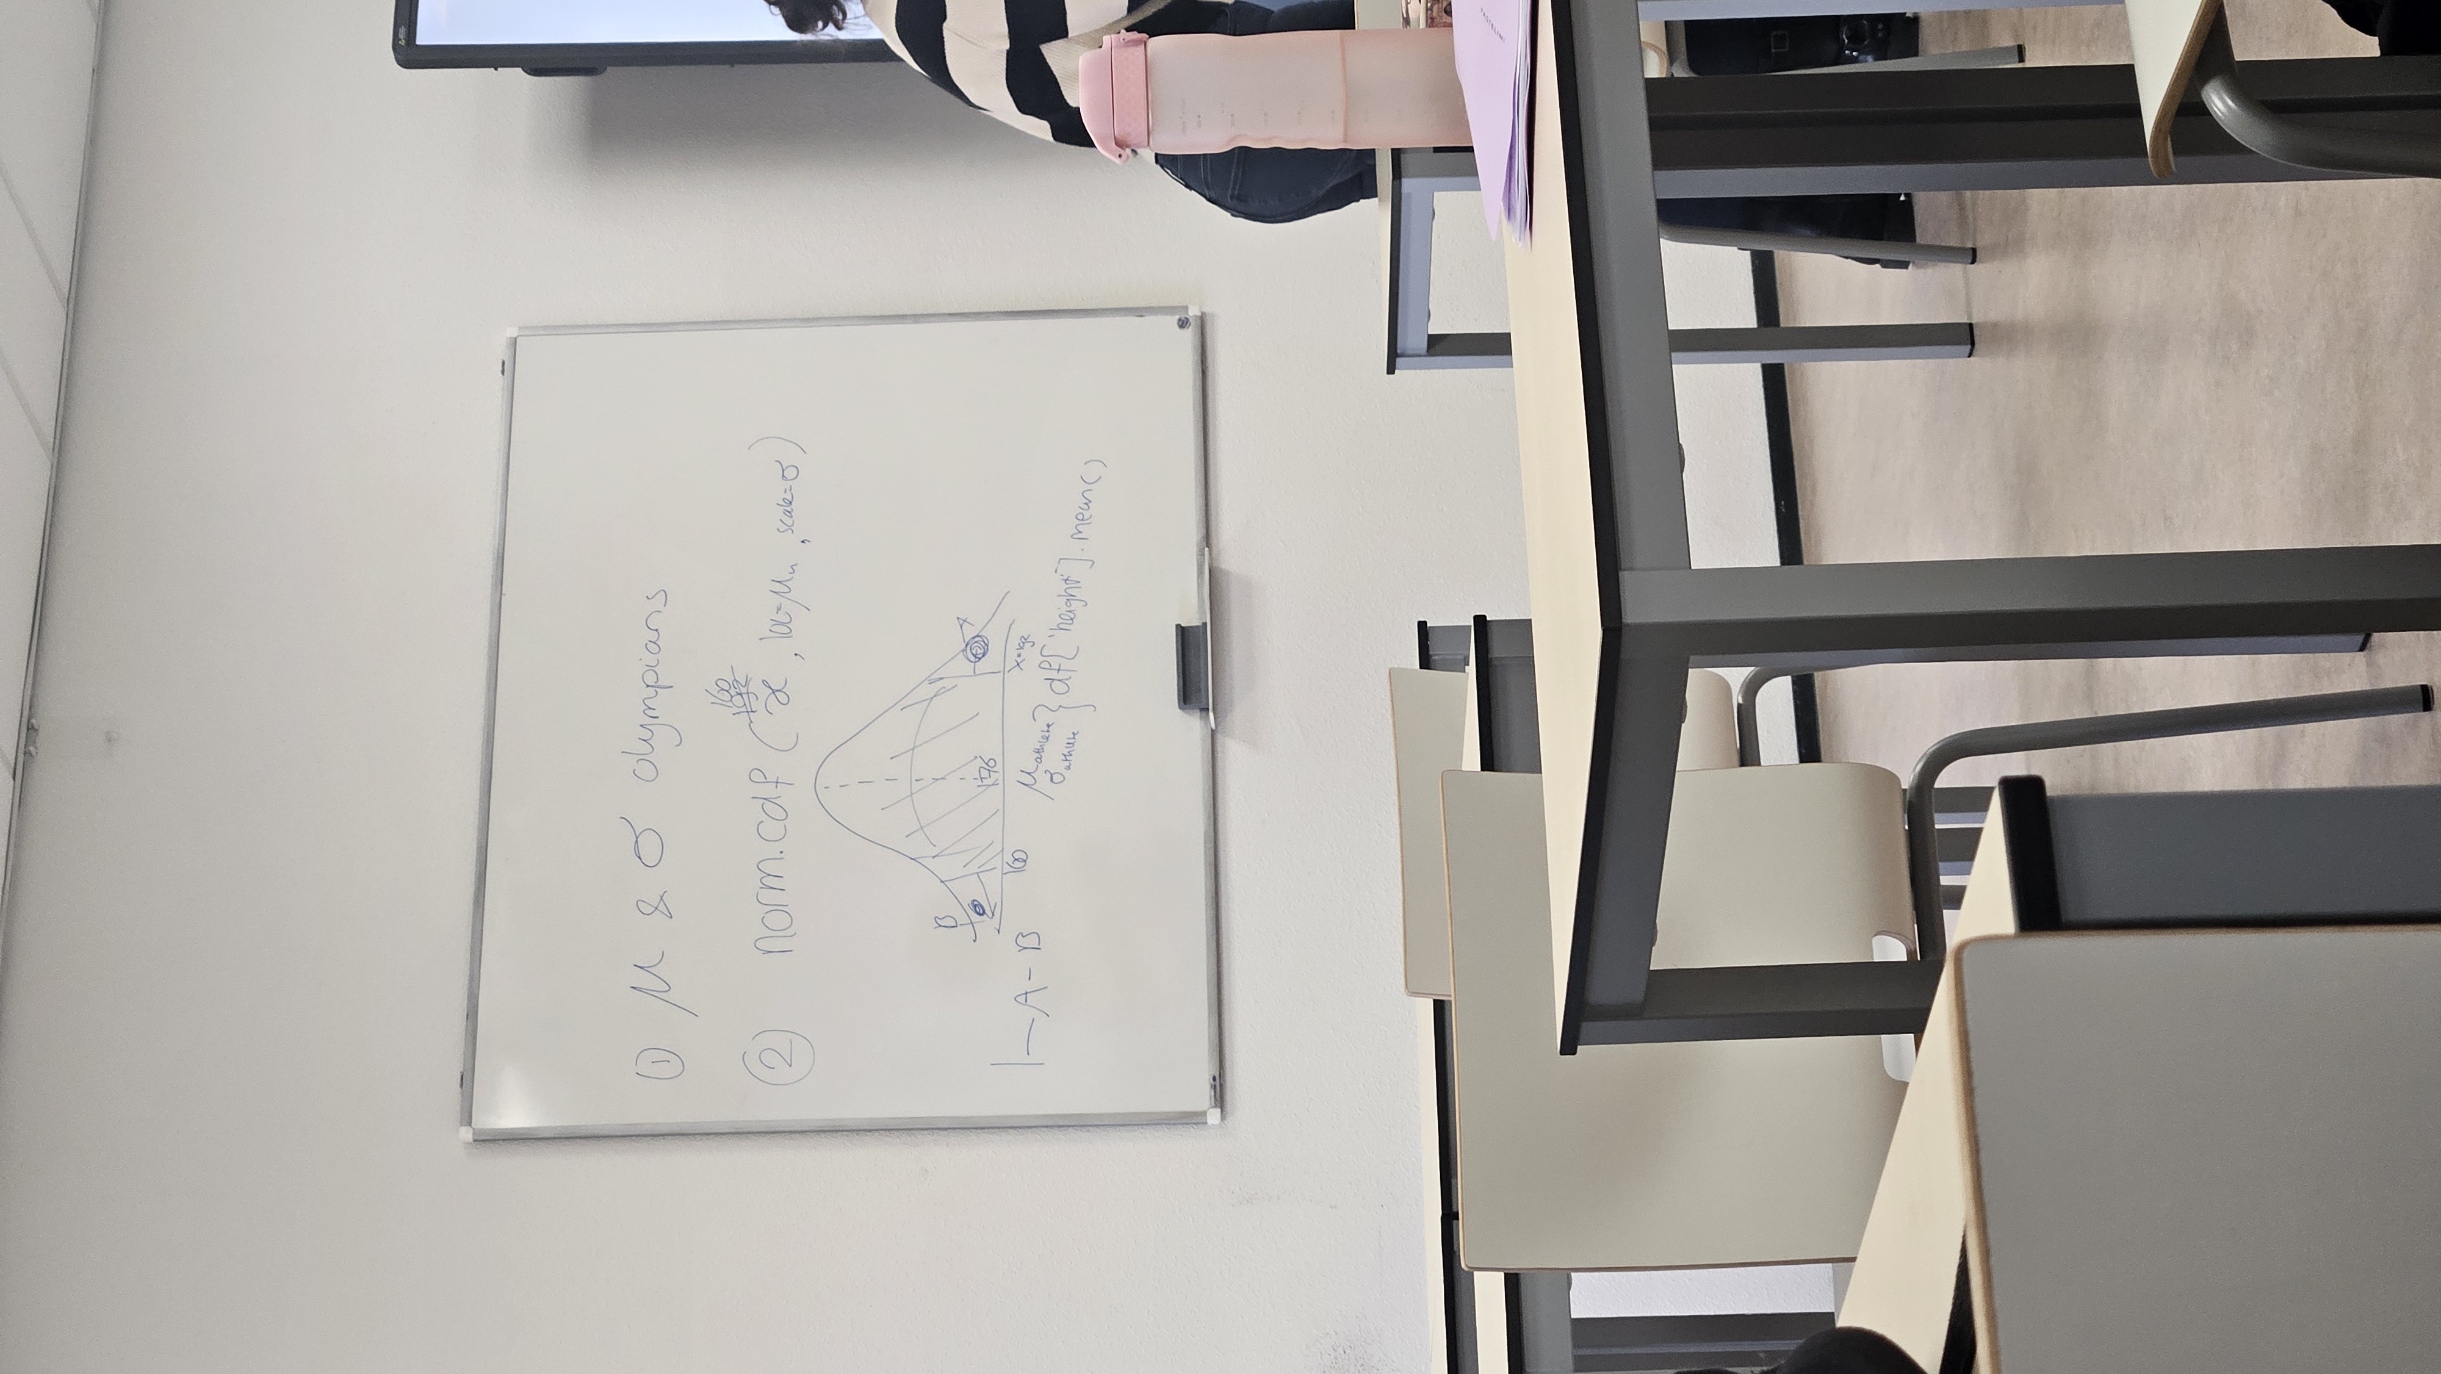 ① μ & σ olympians
160
192
② norm.cdf ( x , loc=μn , scale=σ )
B
A
176
160
x=192
1-A-B
μathlete
σathlete } df['height'].mean()